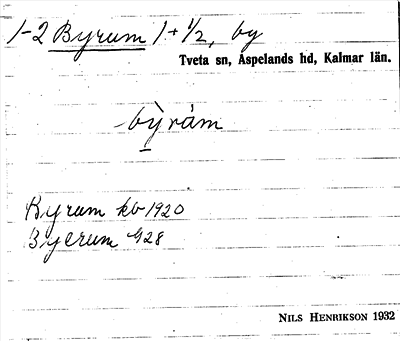 1-2 Byrum 1+1/2, by
Tveta sn, Aspelands hd, Kalmar län.
bỳrám
Byrum kb 1920
Byerum 428
NILS HENRIKSON 1932